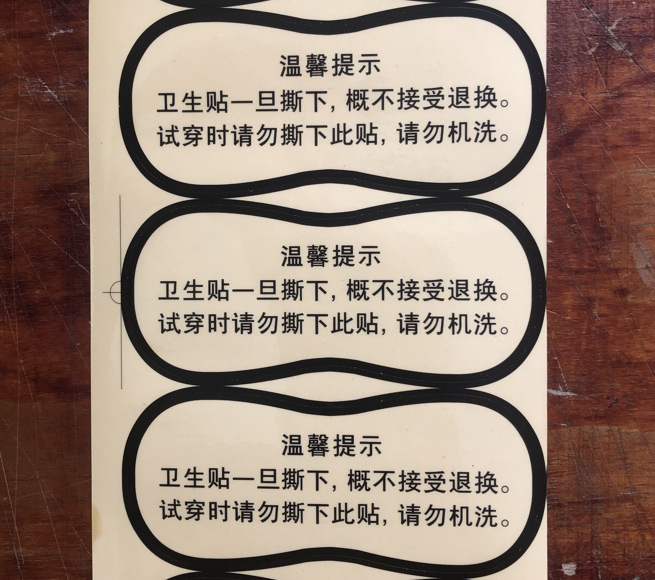 温馨提示
卫生贴一旦撕下,概不接受退换。
试穿时请勿撕下此贴,请勿机洗。
温馨提示
卫生贴一旦撕下,概不接受退换。
试穿时请勿撕下此贴,请勿机洗。
温馨提示
卫生贴一旦撕下,概不接受退换。
试穿时请勿撕下此贴,请勿机洗。